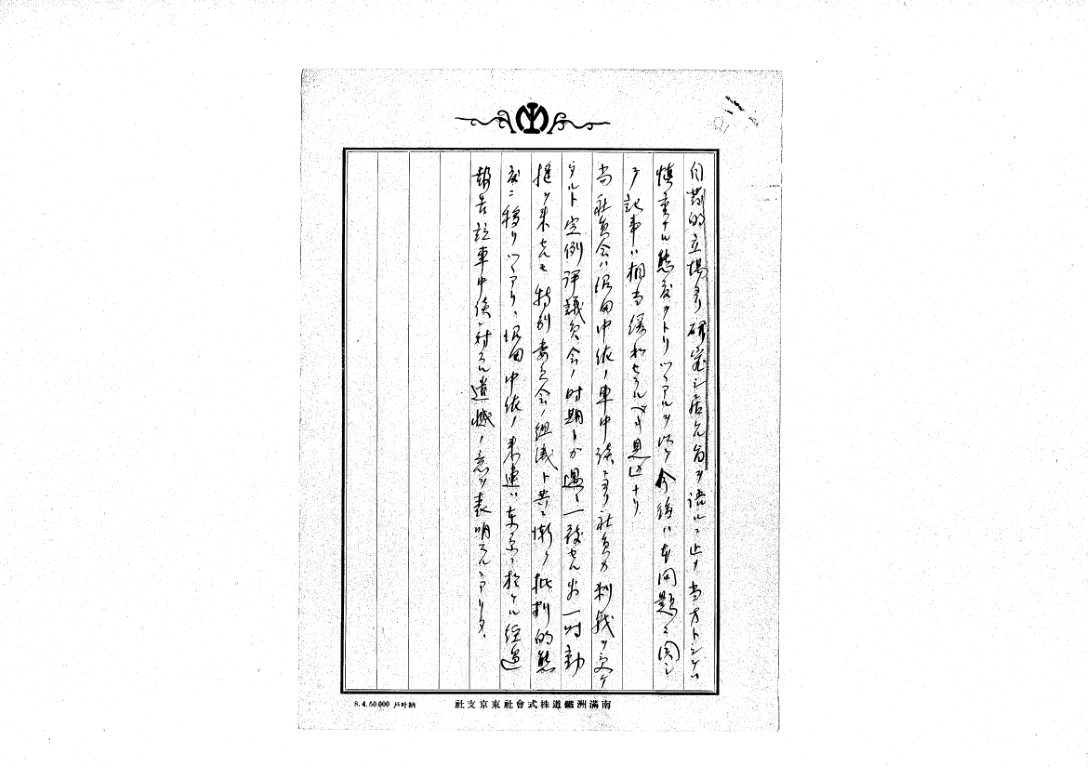 自発的立場ヨリ研究シ居ル旨ヲ語ルニ止メ当方トシテハ
慎重ナル態度ヲトリツヽアルヲ以テ今後ハ本問題ニ関シ
テ記事ハ相当緩和セラルベキ見込ナリ
尚社員会ハ沼田中佐ノ車中談ニヨリ社員ガ刺戟ヲ受ケ
タルト定例評議員会ノ時期トガ一致セル為一時動
揺ヲ来セルモ特別委員会ノ組織ト共ニ漸ク批判的態
度ニ移リツヽアリ、沼田中佐ノ来連ハ東京ニ於ケル経過
報告並車中談ニ対スル遺憾ノ意ヲ表明スルニアリタリ
南滿洲鐵道株式會社東京支社
8.4.50.000